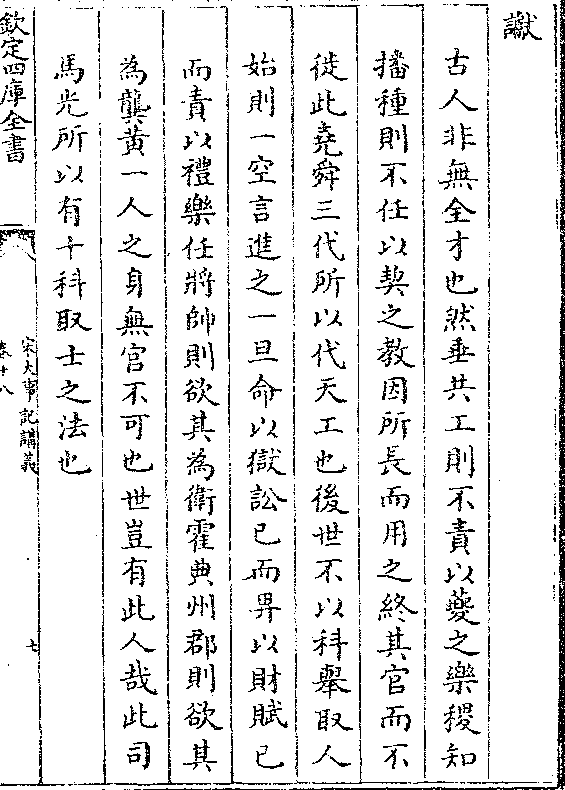 讞
古人非無全才也然垂共工則不責以夔之樂稷知
播種則不任以契之教因所長而用之終其官而不
徙此堯舜三代所以代天工也後世不以科舉取人
始則一空言進之一旦命以獄訟已而畀以財賦已
而責以禮樂任將帥則欲其為衛霍典州郡則欲其
為龔黃一人之身無官不可也世豈有此人哉此司
馬光所以有十科取士之法也
欽定四庫全書
宋大事記講義
卷十八
七